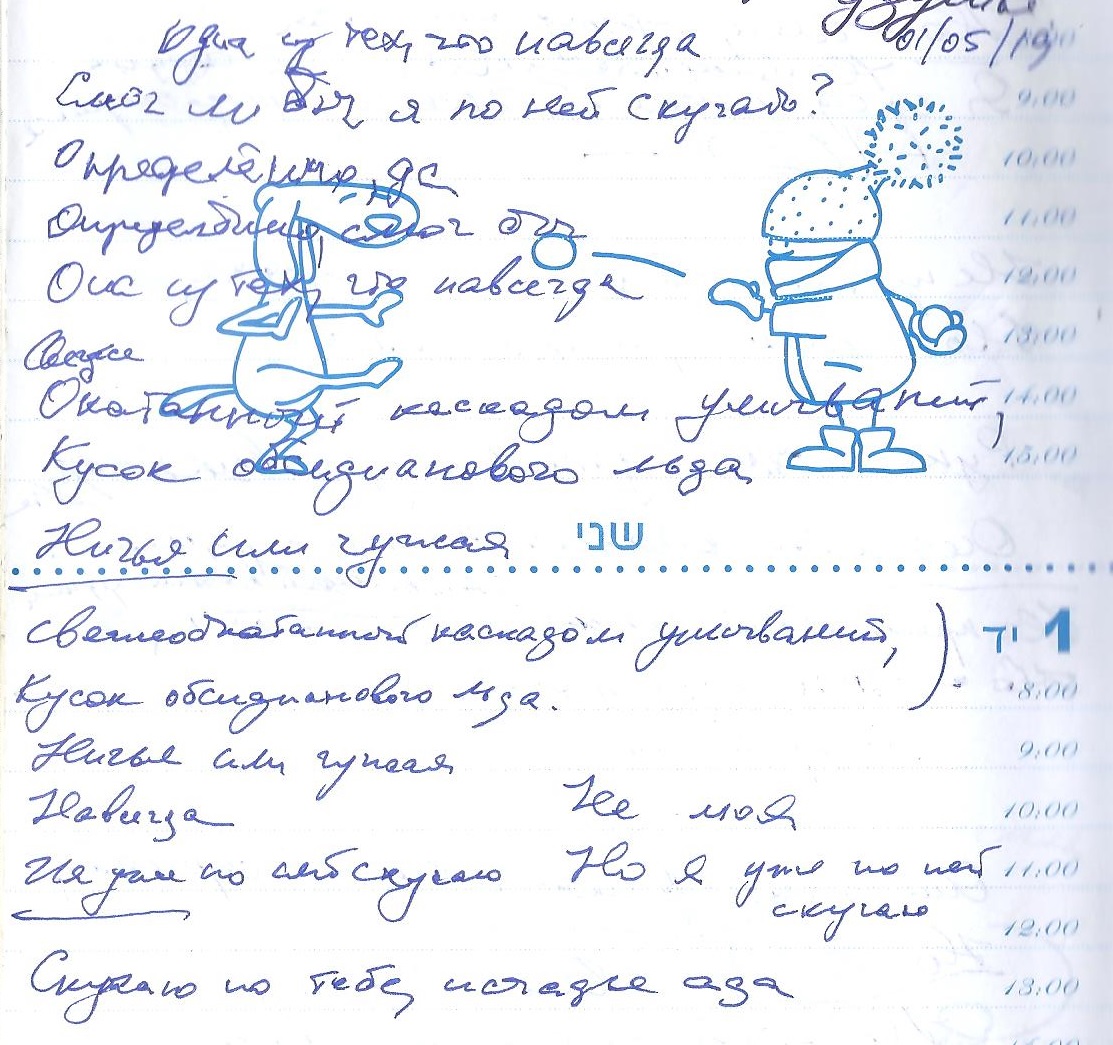 01/05/19
Одна из тех, что навсегда
Смог ли бы я по ней скучать?
Определённо, да
Определённо, смог бы
Она из тех, что навсегда
9:00
10:00
11:00
12:00
13:00
14:00
15:00
Окатанный каскадом умничаний,
Кусок обсидианового льда
Ничья или чужая
שני
1 יד
Свежеобкатанный каскадом умничаний,
Кусок обсидианового льда.
8:00
Ничья или чужая
9:00
Навсегда Не моя
10:00
И я уже по ней скучаю Но я уже по ней
скучаю
11:00
12:00
Скучаю по тебе, исчадье ада
13:00